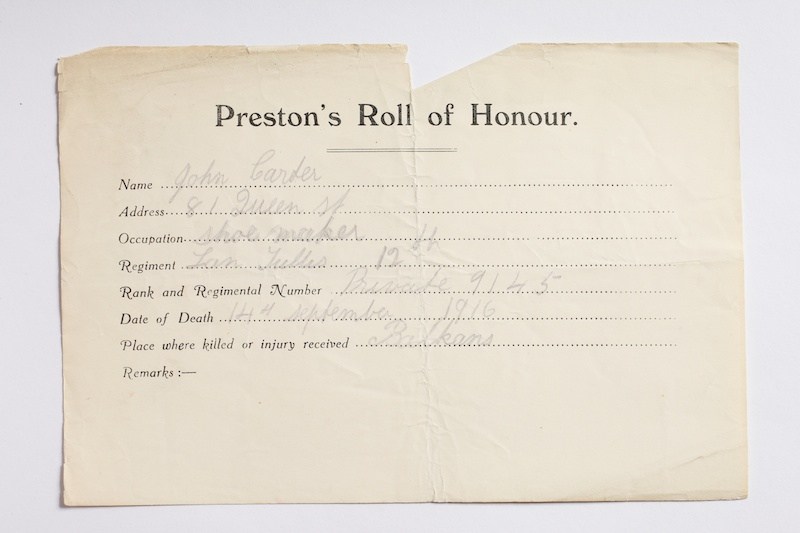 Preston's Roll of Honour.
Name John Carder
Address 81 Queen st
Occupation shoe maker
Regiment Lan Fullrs 12th
Rank and Regimental Number Private 9145
Date of Death 14th september 1916
Place where killed or injury received Balkans
Remarks :—